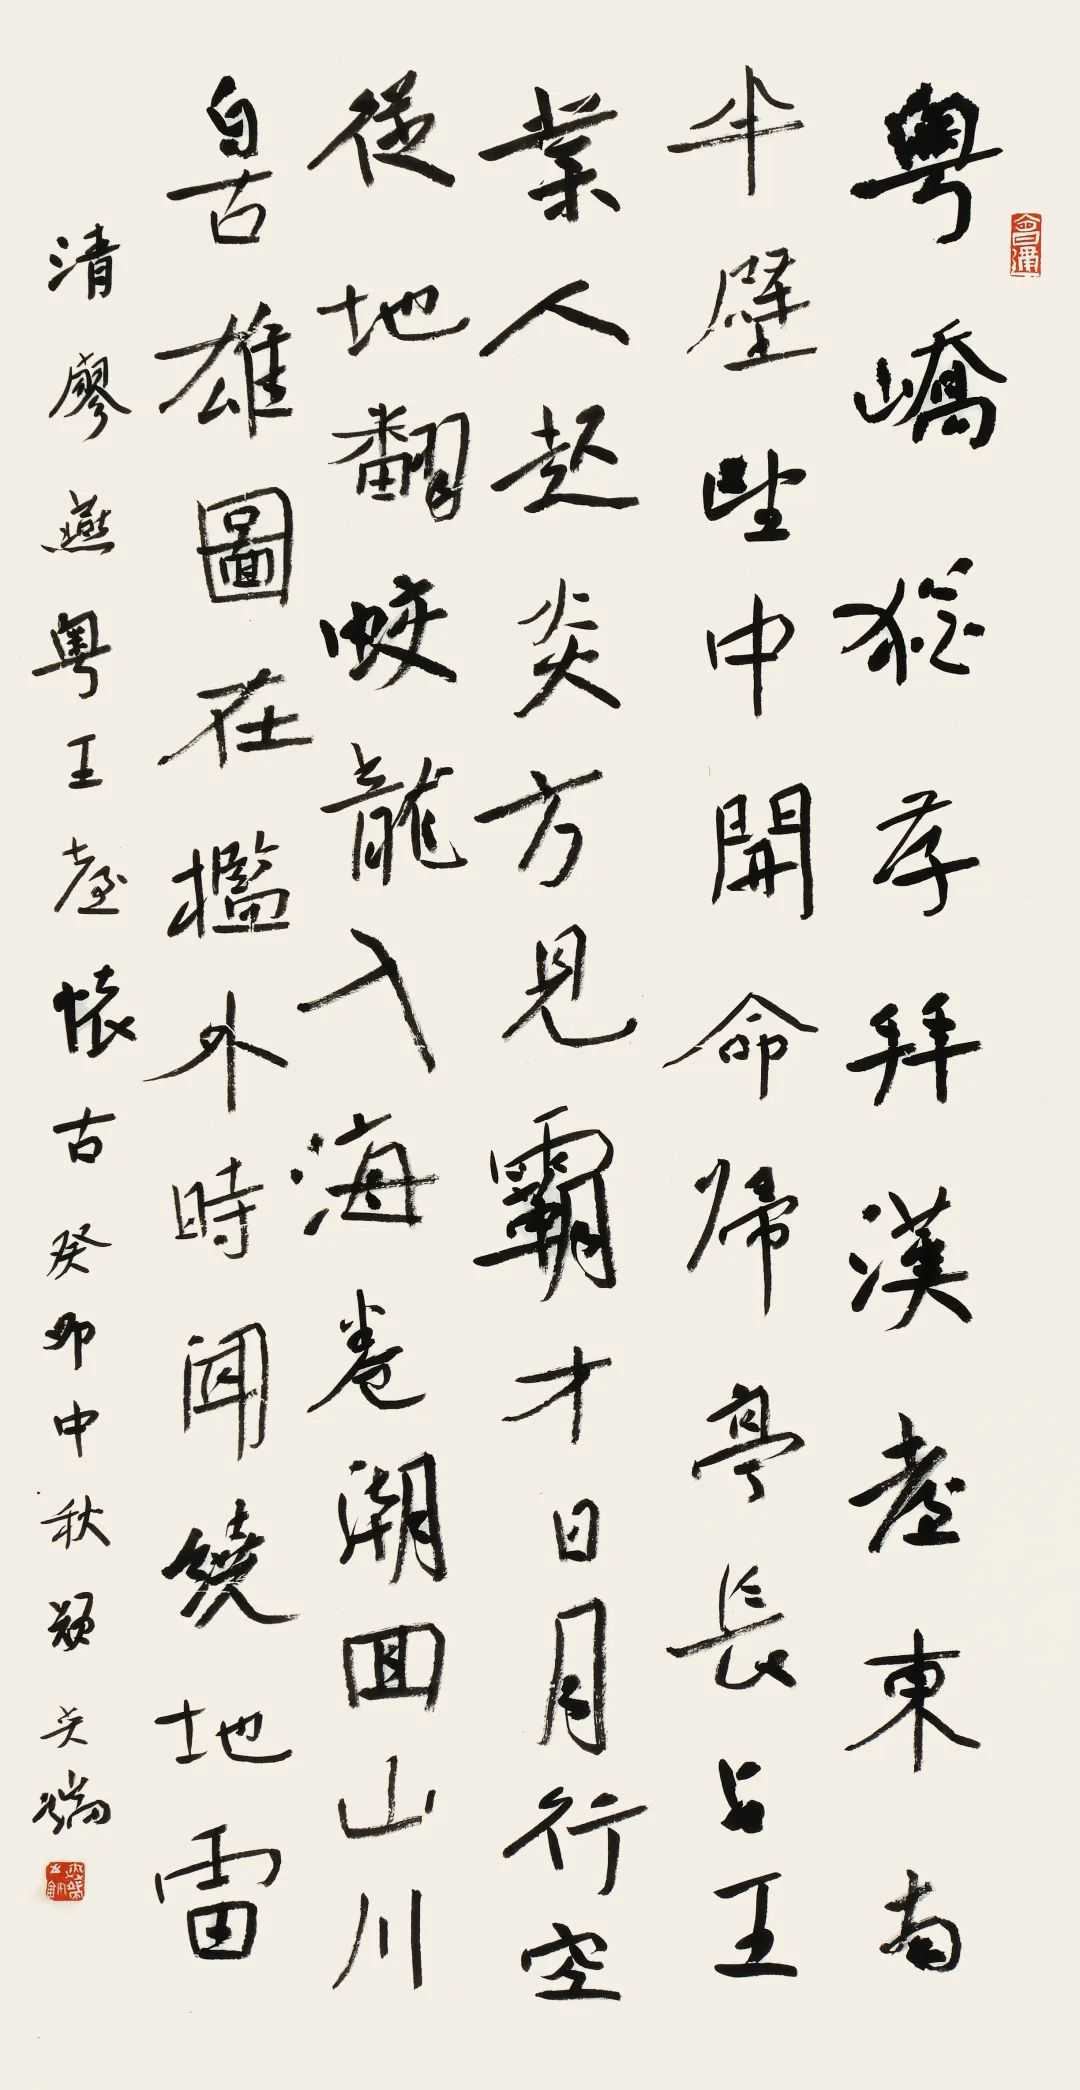 粤嶠猶存拜漢臺東南
半壁望中開命歸亭長占王
業人起炎方見霸才日月行空
從地翻蛟龍入海卷潮回山川
自古雄圖在檻外時聞繞地雷
清廖燕粤王臺懷古癸卯中秋
會通